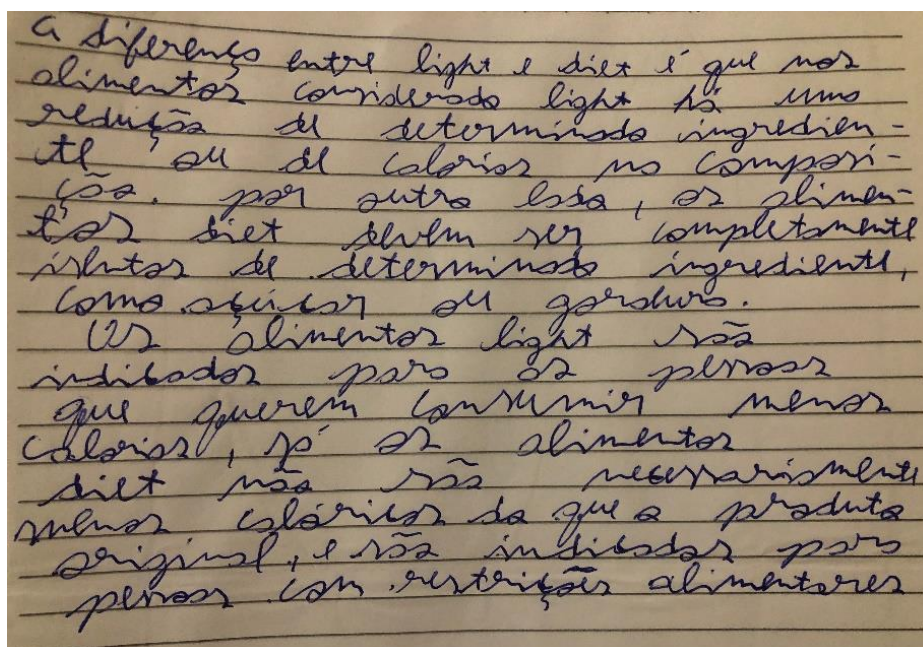 A diferença entre light e diet é que nos
alimentos considerado light há uma
redução de determinado ingredien-
te ou de calorias na composi-
ção. por outro lado, os alimen-
tos diet devem ser completamente
isentos de determinado ingrediente,
como açúcar ou gordura.
Os alimentos light são
indicados para as pessoas
que querem consumir menos
calorias, já os alimentos
diet não são necessariamente
menos calóricos do que o produto
original, e são indicados para
pessoas com restrições alimentares